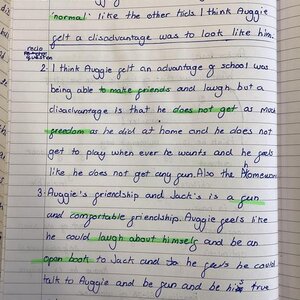 'normal' like the other kids I think Auggie
felt a disadvantage was to look like him.
recio
question
2. I think Auggie felt an advantage of school was
being able to make friends and laugh but a
disadvantage is that he does not get as much
freedom as he did at home and he does not
get to play when ever he wants and he feels
like he does not get any fun. Also the Homework
3. Auggie's friendship and Jack's is a fun
and comfortable friendship. Auggie feels like
he could laugh about himself and be an
open book to Jack and he feels he could
talk to Auggie and be fun and be his true